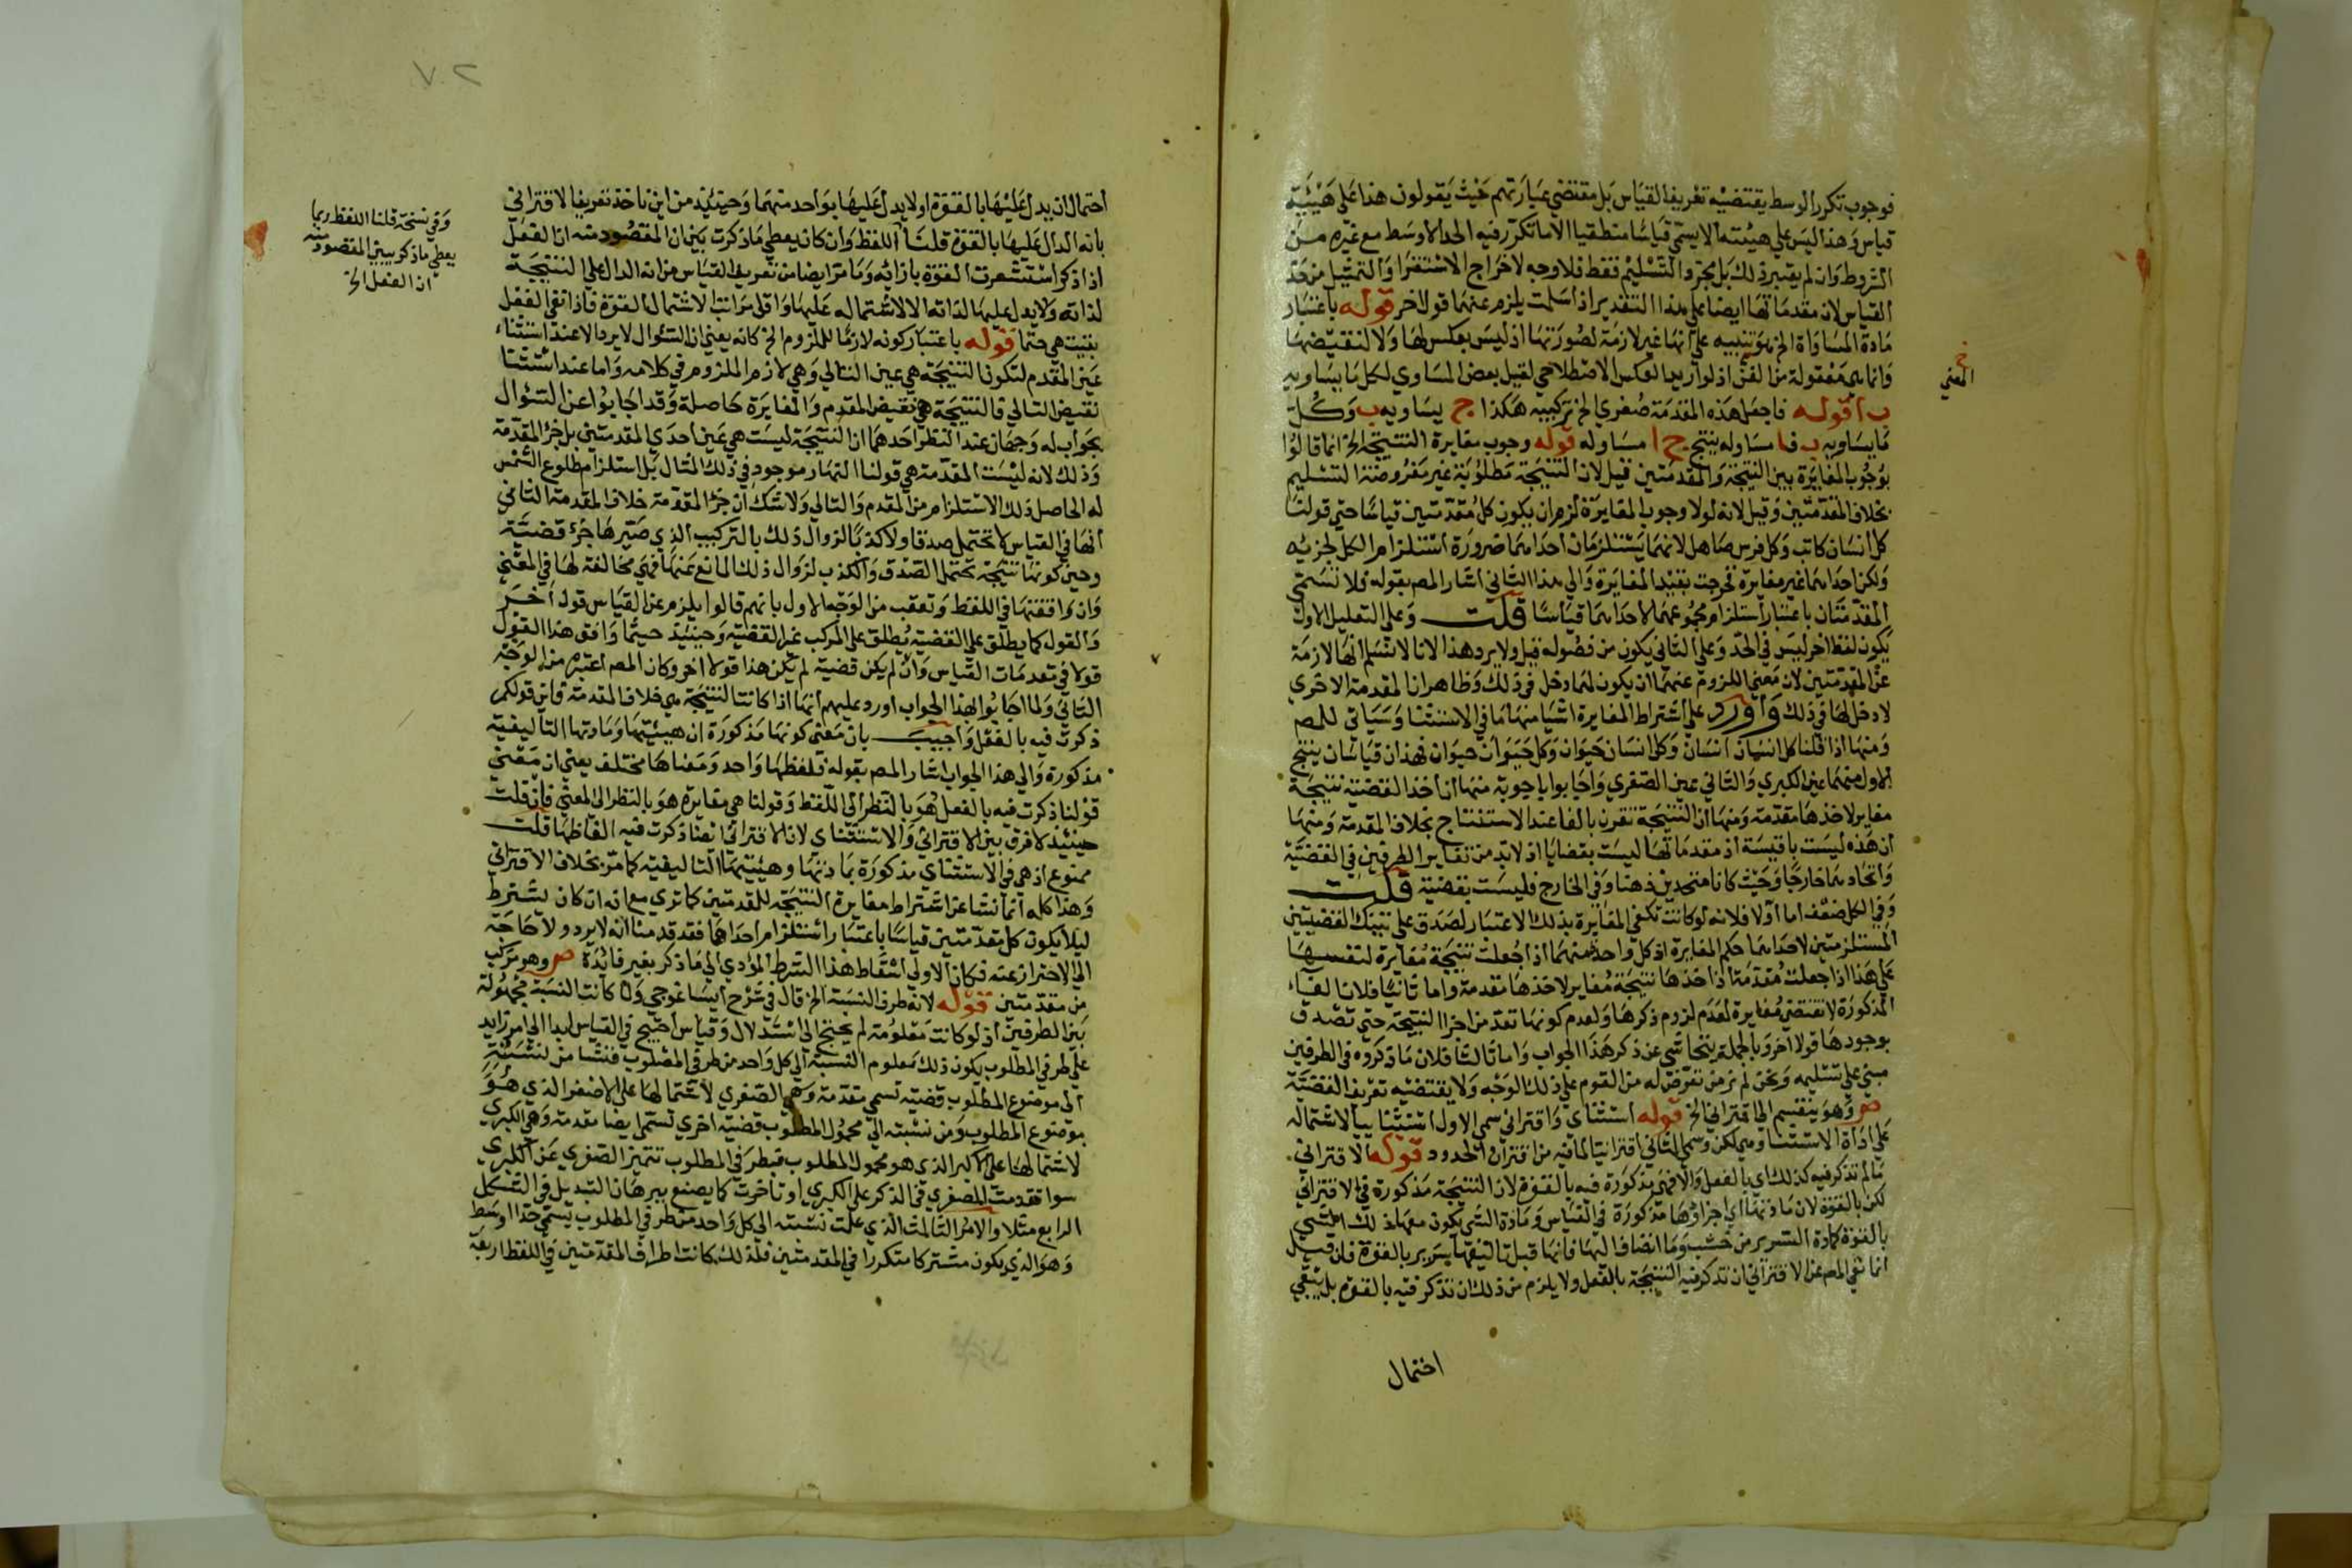 فوجوب تكرر الوسط يقتضيه تعريف القياس بل مقتضي عبارتهم حيث يقولون هذا على هيئية
قياس وهذا ليس علي هيئته الا يسمى قياسا منطقيا الا ما تكرر فيه الحد الاوسط مع غيره من
الشروط وان لم يعتبر ذلك بل مجرد التسليم فقط فلا وجه لاخراج الاستقرا والتمثيل من حد
القياس لان مقدماتها ايضا على هذا التقدير اذا سلمت يلزم عنها قول اخر قوله باعتبار
مادة المساواة الخ هو تنبيه علي انها غير لازمة لصورتها اذ ليس بعكس لها ولا لنقيضها
وانما هي مقولة من الفن اذ لو اريد بها العكس الاصطلاحي لقيل بعض المساوي لكل ما يساويه
ب ا قوله فاجعل هذه المقدمة صغري الخ تركيبه هكذا ج يساويه ب وكل
ما يساويه ب فا مساو له ينتج ج ا مساو له قوله وجوب مغايرة النتيجة الخ انما قالوا
بوجوب المغايرة بين النتيجة والمقدمتين قيل لان النتيجة مطلوبة غير مفروضة التسليم
بخلاف المقدمتين وقيل لانه لولا وجوب المغايرة لزم ان يكون كل مقدمتين قياسا حتي قولنا
كل انسان كاتب وكل فرس صاهل لانهما يستلزمان احداهما ضرورة استلزام الكل لجزئه
ولكن احداهما غير مغايرة فخرجت بقيد المغايرة والي هذا الثاني اشار المص بقوله فلا تسمى
المقدمتان باعتبار استلزام مجموعهما لاحداهما قياسا قلت وعلى التعليل الاول
يكون لفظ اخر ليس في الحد وعلى الثاني يكون من فصوله قيل ولا يرد هذا لانا لا نسلم انها لازمة
عن المقدمتين لان معني اللزوم عنهما ان يكون لهما دخل في ذلك وظاهر ان المقدمة الاخرى
لا دخل لها في ذلك واورد على اشتراط المغايرة اشيا منها ما في الاستثنا وسياتي للمص
ومنها اذا قلنا كل انسان انسان وكل انسان حيوان وكل حيوان حيوان فهذان قياسان ينتج
الاول منهما عين الكبري والثاني عين الصغري واجابوا باجوبة منها ان اخذ القضية نتيجة
مغاير لاخذها مقدمة ومنها ان النتيجة تقرن بالفا عند الاستنتاج بخلاف المقدمة ومنها
ان هذه ليست باقيسة اذ مقدماتها ليست بقضايا اذ لا بد من تغاير الطرفين في القضية
واتحادهما خارجا وحيث كانا متحدين ذهنا وفي الخارج فليست بقضية قلت
وفي الكل ضعف اما اولا فلانه لو كانت تكفي المغايرة بذلك الاعتبار لصدق على تينك القضيتين
المستلزمتين لاحداهما حكم المغايرة اذ كل واحدة منهما اذا جعلت نتيجة مغايرة لنفسها
على هذا اذا جعلت مقدمة اذ اخذها نتيجة مغاير لاخذها مقدمة واما ثانيا فلان الفاء
المذكورة لا تقتضي مغايرة لعدم لزوم ذكرها ولعدم كونها تعد من اجزا النتيجة حتي تصدق
بوجودها قولا اخر وبالجملة يتحاشي عن ذكر هذا الجواب واما ثالثا فلان ما ذكروه في الطرفين
مبني علي تسليمه ونحن لم نر من تعرض له من القوم على ذلك الوجه ولا يقتضيه تعريف القضية
ص وهو ينقسم الى اقتراني الخ قوله استثناي واقتراني سمي الاول استثنا ييا لاشتماله
على اداة الاستثنا وهي لكن وسمي الثاني اقترانيا لما فيه من اقتران الحدود قوله الاقتراني
ما لم تذكر فيه كذلك اي بالفعل والا فهي مذكورة فيه بالقوة لان النتيجة مذكورة في الاقتراني
لكن بالقوة لان مادتها اي اجزاؤها مذكورة في القياس ومادة الشي يكون معها ذلك الشي
بالقوة كمادة السرير من خشب وما انضاف اليها فانها قبل تاليفها سرير بالقوة فان قيل
انما نفي المص عن الاقتراني ان تذكر فيه النتيجة بالفعل ولا يلزم من ذلك ان تذكر فيه بالقوة بل يبقى
احتمال
خ
المعني
٧٠٢
احتمال ان يدل عليها بالقوة او لا يدل عليها بواحد منهما وحينئذ من اين ناخذ تعريف الاقتراني
بانه الدال عليها بالقوة قلنا اللفظ وان كان يعطي ما ذكرت بين ان المقصود منه ان الفعل
اذا ذكر استشعرت القوة بازائه وما مر ايضا من تعريف القياس من انه الدال علي النتيجة
لذاته ولا يدل عليها لذاته الا لاشتماله عليها واقل مراتب الاشتمال القوة فاذا نفي الفعل
بقيت هي حتما قوله باعتبار كونه لازما للملزوم الخ كانه يعني ان السؤال لا يرد الا عند استثناء
عين المقدم لتكون النتيجة هي عين التالي وهي لازم الملزوم في كلامه واما عند استثنا
نقيض التالي فالنتيجة هي نقيض المقدم والمغايرة حاصلة وقد اجابوا عن السؤال
بجواب له وجهان عند النظر احدهما ان النتيجة ليست هي عين احدي المقدمتين بل جزء المقدمة
وذلك لانه ليست المقدمة هي قولنا النهار موجود في ذلك المثال بل استلزام طلوع الشمس
له الحاصل ذلك الاستلزام من المقدم والتالي ولا شك ان جزء المقدمة خلاف المقدمة الثاني
انها في القياس لا تحتمل صدقا ولا كذبا لزوال ذلك بالتركيب الذي صيرها جزء قضية
وحين كونها نتيجة تحتمل الصدق والكذب لزوال ذلك المانع عنها فهي مخالفة لها في المعني
وان وافقتها في اللفظ وتعقب من الوجه الاول بانهم قالوا يلزم عن القياس قول اخر
والقول كما يطلق على القضية يطلق على المركب غير القضية وحينئذ حيثما وافق هذا القول
قولا في مقدمات القياس وان لم يكن قضية لم يكن هذا قولا اخر وكان المص اعتبر من الوجه
الثاني ولما اجابوا بهذا الجواب اورد عليهم انها اذا كانت النتيجة هي خلاف المقدمة فاين قولكم
ذكرت فيه بالفعل واجيب بان معنى كونها مذكورة ان هيئتها ومادتها التاليفية
مذكورة والي هذا الجواب اشار المص بقوله فلفظها واحد ومعناها مختلف يعني ان معني
قولنا ذكرت فيه بالفعل هو بالنظر الى اللفظ وقولنا هي مغايرة هو بالنظر الى المعني فان قلت
حينئذ لا فرق بين الاقتراني والاستثناي لان الاقتراني ايضا ذكرت فيه الفاظها قلت
ممنوع اذ هي في الاستثناي مذكورة بمادتها وهيئتها التاليفية كما مر بخلاف الاقتراني
وهذا كله انما نشا عن اشتراط مغايرة النتيجة للمقدمتين كما تري مع انه ان كان يشترط
ليلا يكون كل مقدمتين قياسا باعتبار استلزام احداهما فقد قدمنا انه لا يرد ولا حاجة
الى الاحتراز عنه فكان الاولى اسقاط هذا الشرط المؤدي الي ما ذكر بغير فائدة ص وهو مركب
من مقدمتين قوله لانه طرف النسبة الخ قال في شرح ايساغوجي ولما كانت النسبة مجهولة
بين الطرفين اذ لو كانت معلومة لم يحتج الى استدلال وقياس احتيج في القياس ابدا الى امر زايد
على طرفي المطلوب يكون ذلك معلوم النسبة الى كل واحد من طرفي المطلوب فنشا من نسبته
الى موضوع المطلوب قضية تسمي مقدمة وهي الصغري لاشتمالها على الاصغر الذي هو
موضوع المطلوب ومن نسبته الي محمول المطلوب قضية اخري تسمى ايضا مقدمة وهي الكبرى
لاشتمالها على الاكبر الذي هو محمول المطلوب فبطرفي المطلوب تتميز الصغري عن الكبري
سوا تقدمت الصغري في الذكر على الكبري او تاخرت كما يصنع ببرهان التبديل في الشكل
الرابع مثلا والامر الثالث الذي علمت نسبته الى كل واحد من طرفي المطلوب يسمي حدا اوسط
وهو الذي يكون مشتركا متكررا في المقدمتين فلذلك كانت اطراف المقدمتين في اللفظ اربعة
وفي نسخة قلنا اللفظ ربما
يعطي ما ذكر بيبن المقصود منه
ان الفعل الخ